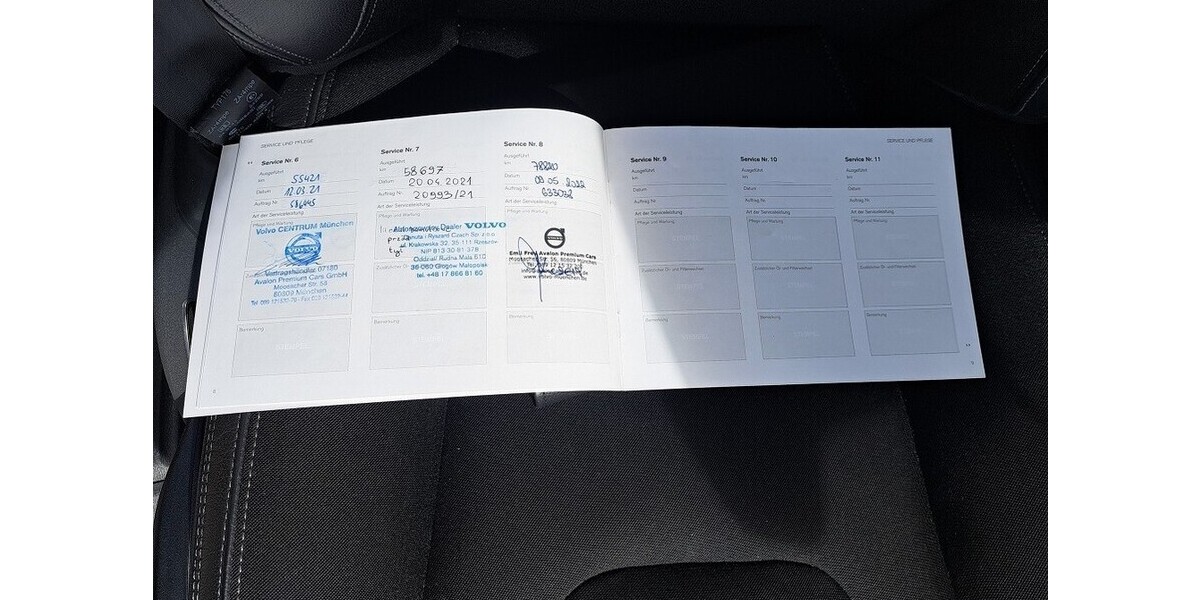 SERVICE UND PFLEGE
Service Nr. 6
Ausgeführt
km 55421
Datum 12.03.21
Auftrag Nr.
Art der Serviceleistung
Pflege und Wartung
Volvo CENTRUM München
VOLVO
Vertragshändler 07180
Avalon Premium Cars GmbH
Moosacher Str. 56
80809 München
Bemerkung
Service Nr. 7
Ausgeführt
km 58697
Datum 20.04.2021
Auftrag Nr. 20993/21
Art der Serviceleistung
Autoryzowany Dealer VOLVO
ul. Krakowska 32, 35-111 Rzeszów
NIP 813 30 81 378
Oddział Rudna Mała 61D
36-060 Głogów Małopolski
tel. +48 17 866 81 60
przód
tył
Bemerkung
Service Nr. 8
Ausgeführt
km
Datum 09.05.2022
Auftrag Nr. 633032
Art der Serviceleistung
Pflege und Wartung
Emil Frey Avalon Premium Cars
Moosacher Str. 56, 80809 München
www.volvo-muenchen.de
Bemerkung
8
SERVICE UND PFLEGE
Service Nr. 9
Ausgeführt
km
Datum
Auftrag Nr.
Art der Serviceleistung
Pflege und Wartung
STEMPEL
Zusätzliche Öl- und Filterwechsel
STEMPEL
Bemerkung
STEMPEL
Service Nr. 10
Ausgeführt
km
Datum
Auftrag Nr.
Art der Serviceleistung
Pflege und Wartung
STEMPEL
Zusätzliche Öl- und Filterwechsel
STEMPEL
Bemerkung
STEMPEL
Service Nr. 11
Ausgeführt
km
Datum
Auftrag Nr.
Art der Serviceleistung
Pflege und Wartung
STEMPEL
Zusätzliche Öl- und Filterwechsel
STEMPEL
Bemerkung
STEMPEL
9